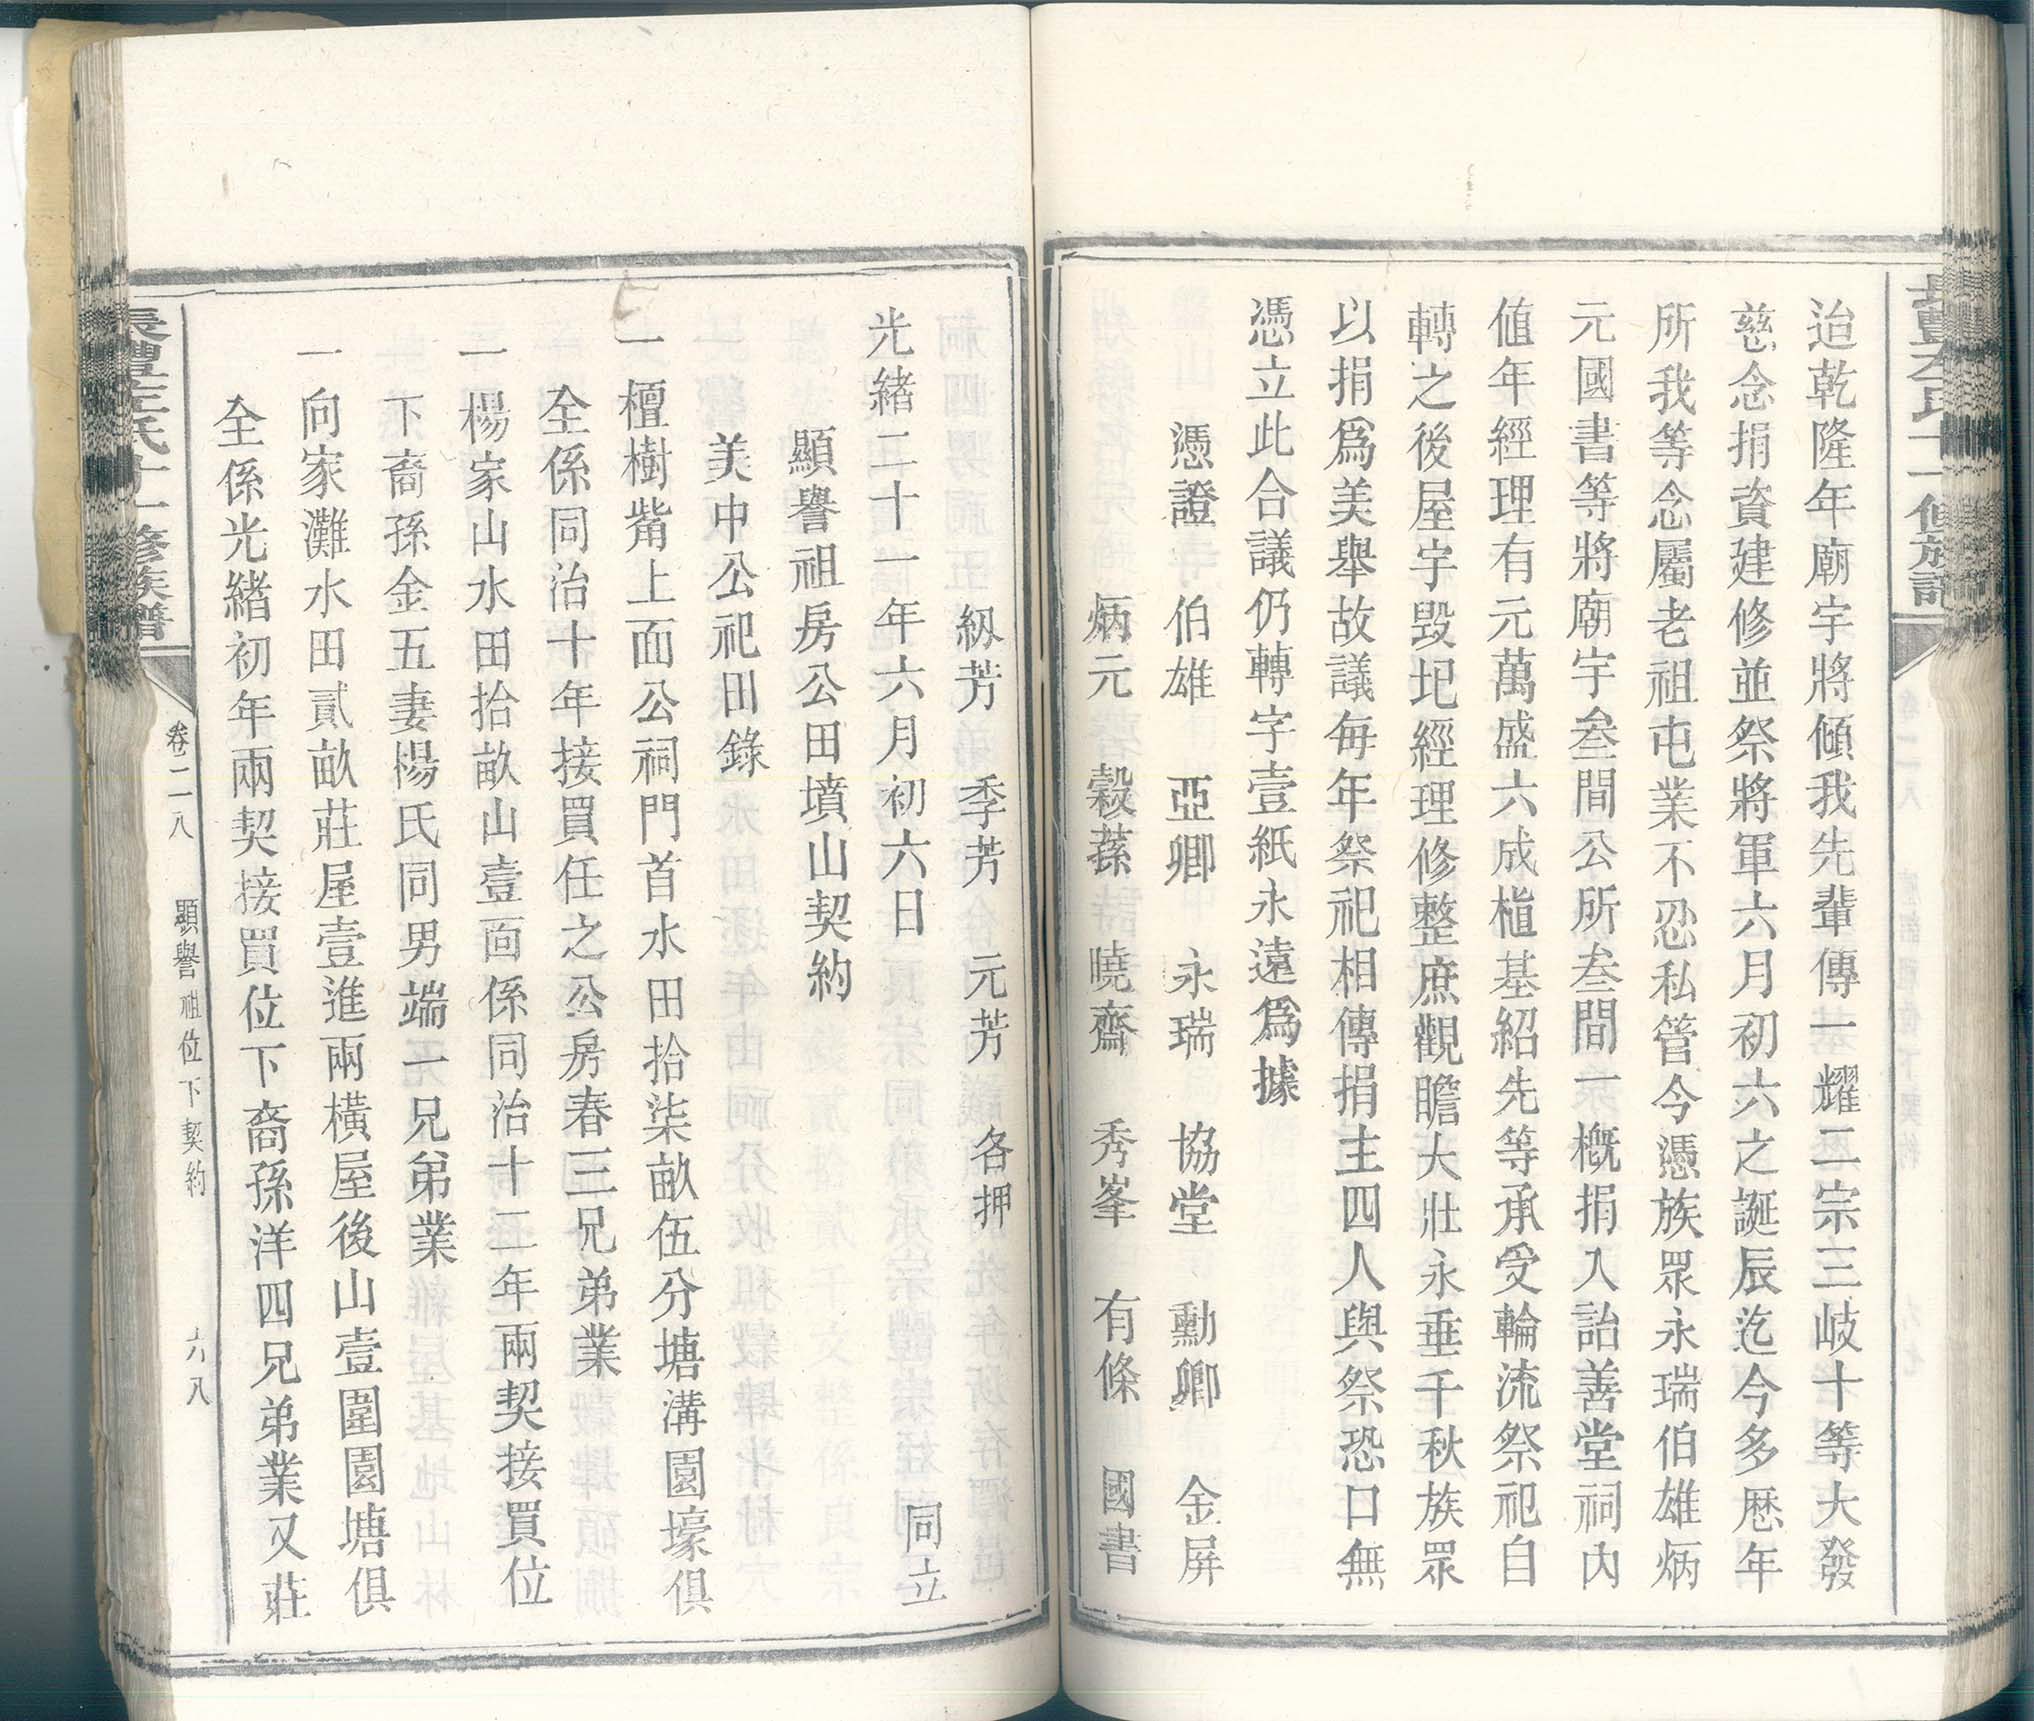 迨乾隆年廟宇將傾我先輩傳一耀二宗三岐十等大發
慈念捐資建修並祭將軍六月初六之誕辰迄今多歷年
所我等念屬老祖屯業不忍私管今憑族眾永瑞伯雄炳
元國書等將廟宇叁間公所叁間一槪捐入詒善堂祠內
值年經理有元萬盛六成植基紹先等承受輪流祭祀自
轉之後屋宇毀圯經理修整庶觀瞻大壯永垂千秋族眾
以捐爲美舉故議每年祭祀相傳捐主四人與祭恐口無
憑立此合議仍轉字壹紙永遠爲據
憑證 伯雄 亞卿 永瑞 協堂 勳卿 金屏
炳元 穀蓀 曉齋 秀峯 有條 國書
紉芳 季芳 元芳 各押
光緒二十一年六月初六日 同立
顯譽祖房公田墳山契約
美中公祀田錄
一檀樹觜上面公祠門首水田拾柒畝伍分塘溝園壕俱
全係同治十年接買任之公房春三兄弟業
一楊家山水田拾畝山壹面係同治十二年兩契接買位
下裔孫金五妻楊氏同男端一兄弟業
一向家灘水田貳畝莊屋壹進兩橫屋後山壹圍園塘俱
全係光緒初年兩契接買位下裔孫洋四兄弟業又莊
長豐左氏十一修族譜
卷二八 顯譽祖位下契約 六八